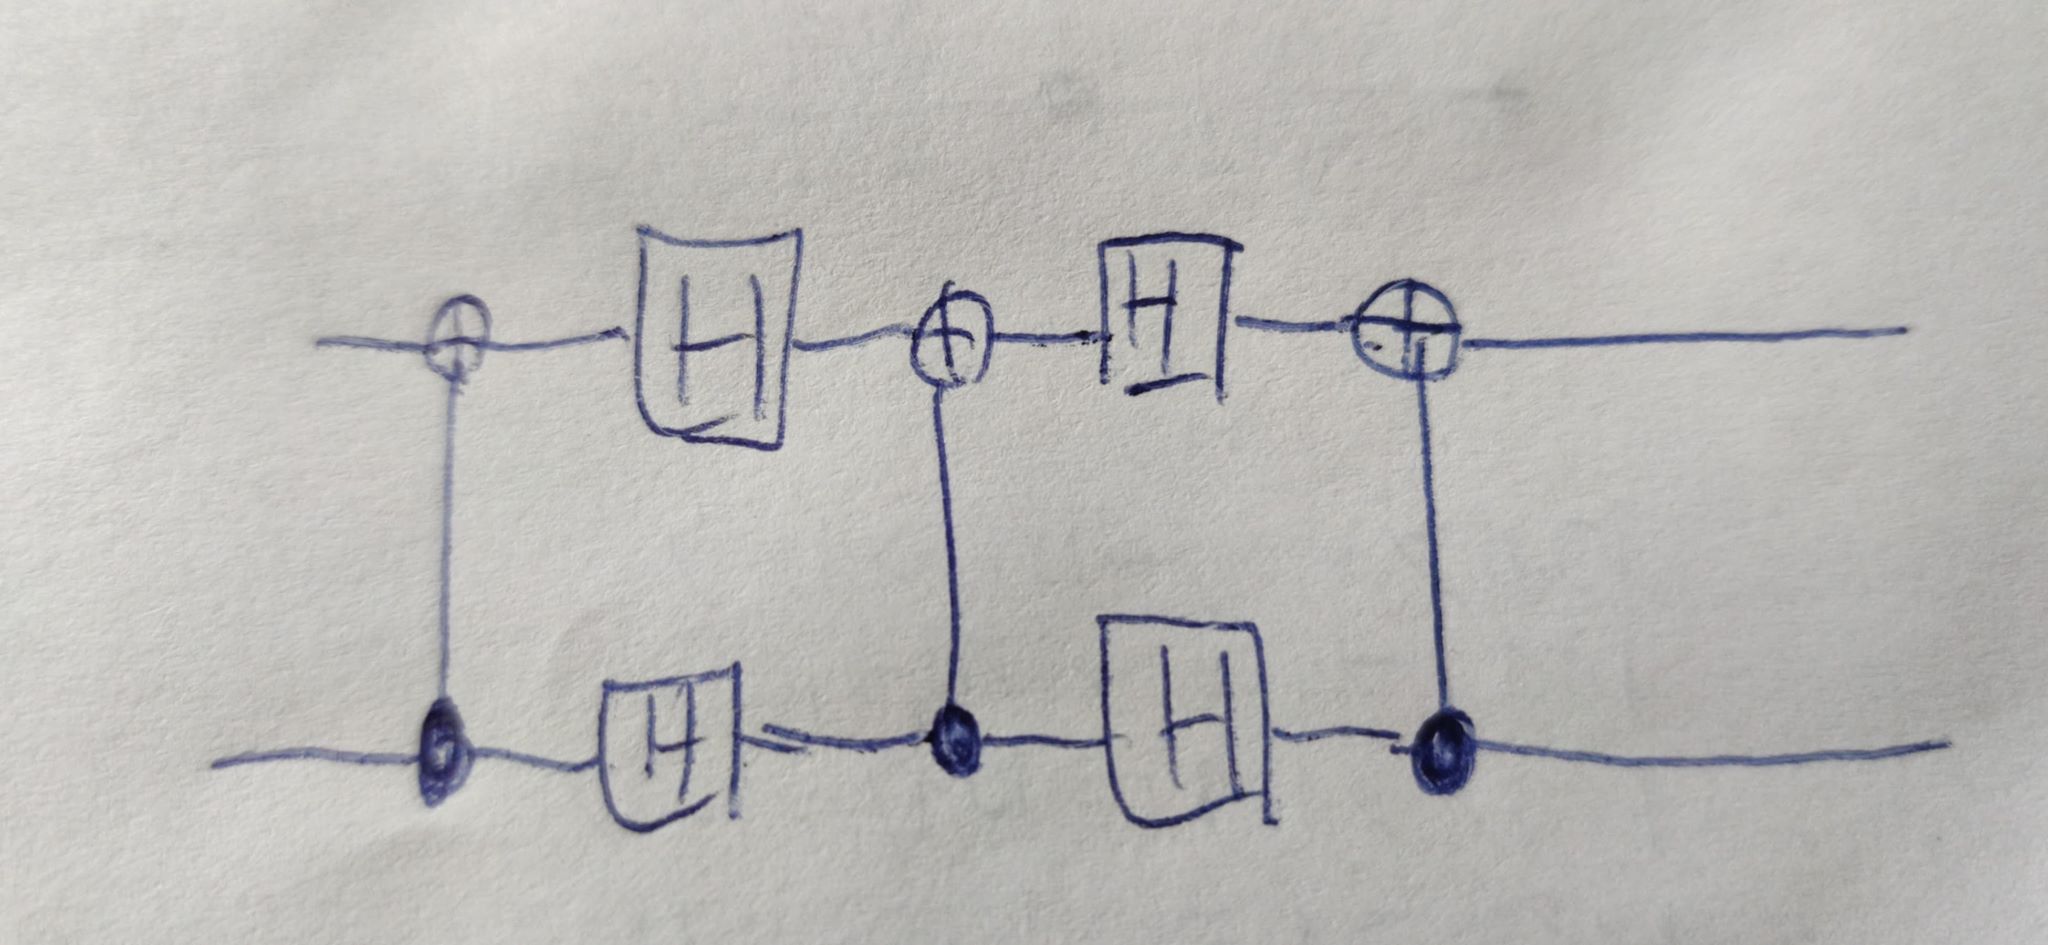 H H
H H